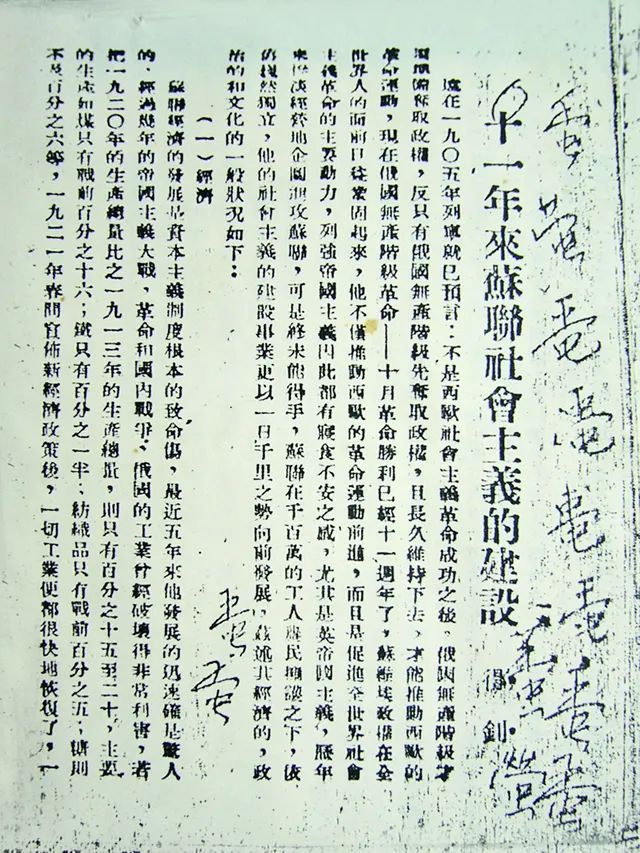 十一年來蘇聯社會主義的建設
得釗
遠在一九〇五年列寧就已預言:不是西歐社會主義革命成功之後,俄國無產階級才
奪取政權,反只有俄國無產階級先奪取政權,且長久維持下去,才能推動西歐的
革命運動,現在俄國無產階級革命——十月革命勝利已經十一週年了,蘇維埃政權在全
世界人的面前日益鞏固起來,他不僅推動西歐的革命運動前進,而且是促進全世界社會
主義革命的主要動力,列強帝國主義因此都有寢食不安之感,尤其是英帝國主義,歷年
來慘淡經營地企圖進攻蘇聯,可是終未能得手,蘇聯在千百萬的工人農民擁護之下,依
仍巍然獨立,他的社會主義的建設事業更以一日千里之勢向前發展,茲述其經濟的,政
治的和文化的一般狀況如下:
(一)經濟
蘇聯經濟的發展是資本主義制度根本的致命傷,最近五年來他發展的迅速確是驚人
的,經過幾年的帝國主義大戰,革命和國內戰爭,俄國的工業曾經破壞得非常利害,若
把一九二〇年的生產總量比之一九一三年的生產總量,則只有百分之十五至二十,主要
的生產如煤只有戰前百分之十六;鐵只有百分之一半;紡織品只有戰前百分之五;糖則
不及百分之六等,一九二一年春間宣佈新經濟政策後,一切工業便都很快地恢復了,一